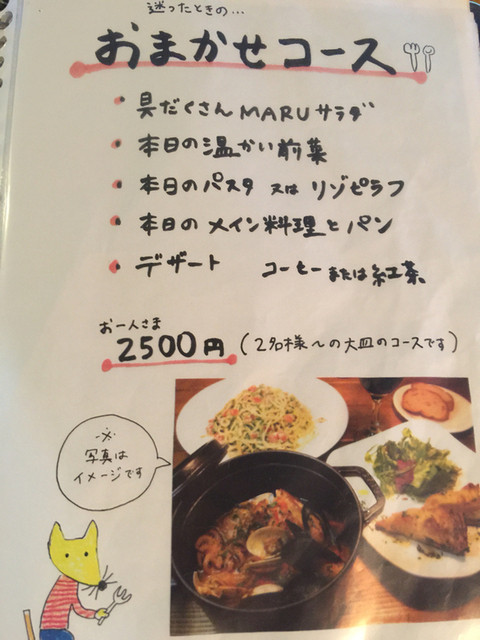 迷ったときの…
おまかせコース
• 具だくさんMARUサラダ
• 本日の温かい前菜
• 本日のパスタ 又は リゾピラフ
• 本日の メイン料理とパン
• デザート コーヒーまたは紅茶
お一人さま
2500円 (2名様〜の大皿のコースです)
※
写真は
イメージです